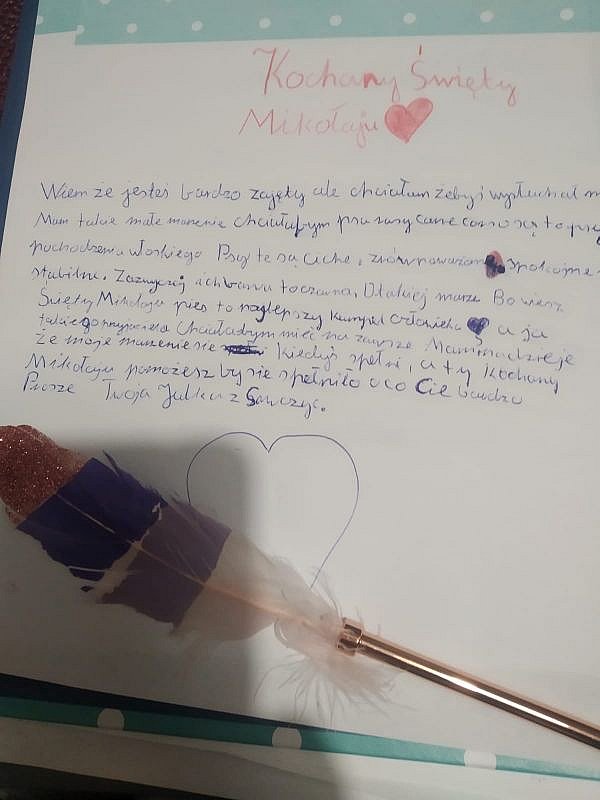 Kochany Święty
Mikołaju
Wiem że jesteś bardzo zajęty ale chciałam żebyś wysłuchał
Mam takie małe marzenie chciałabym psa rasy cane corso są to psy
pochodzenia włoskiego Psy te są ciche, zrównoważone spokojne
stabilne. Zazwyczaj
Święty Mikołaju pies to najlepszy kumpel człowieka a ja
takiego przyjaciela Chciałabym mieć na zawsze Mam nadzieje
że moje marzenie sie kiedyś spełni, a ty kochany
Mikołaju pomożesz by sie spełniło o co Cie bardzo
Prosze Twoja Julka z